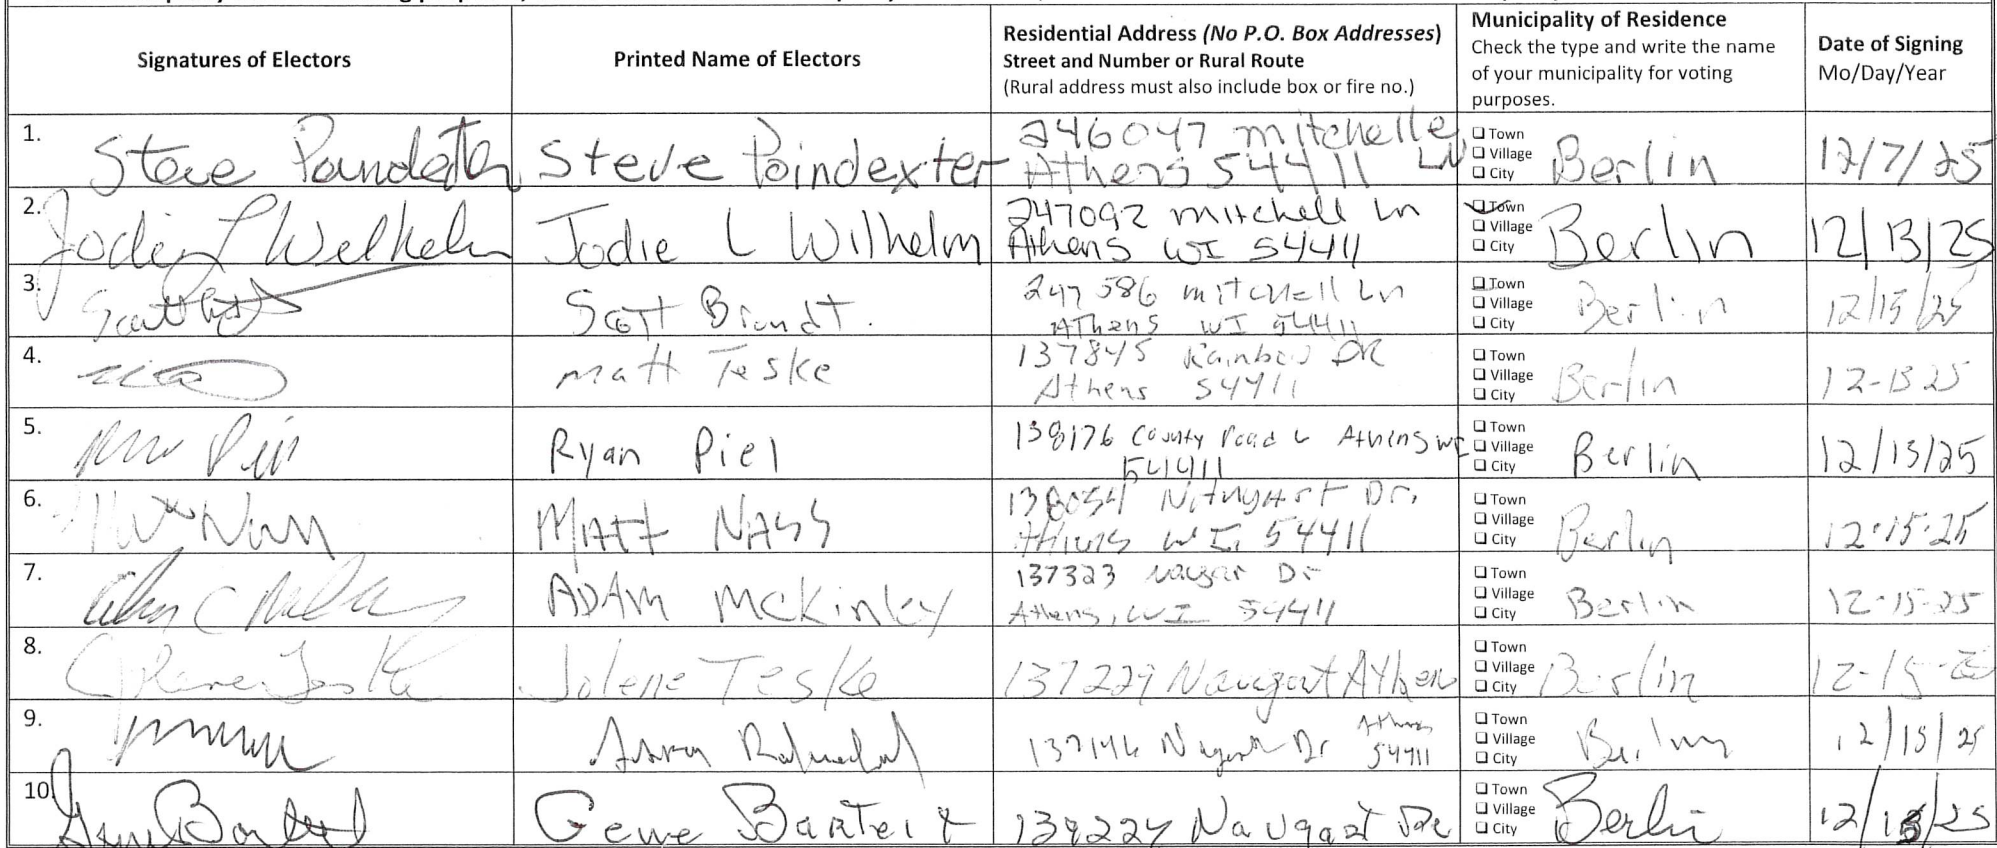 Signatures of Electors
Printed Name of Electors
Residential Address (No P.O. Box Addresses)
Street and Number or Rural Route
(Rural address must also include box or fire no.)
Municipality of Residence
Check the type and write the name
of your municipality for voting
purposes.
Date of Signing
Mo/Day/Year
1.
Steve Poindexter
246047 mitchelle LN
Athens 54411
Town
Village
City
Berlin
12/7/25
2.
Jodie L Wilhelm
247092 mitchell Ln
Athens WI 54411
Town
Village
City
Berlin
12/13/25
3.
Scott Brandt.
247586 mitchell Ln
Athens WI 54411
Town
Village
City
Berlin
12/15/25
4.
Matt Teske
137845 Rainbow DR
Athens 54411
Town
Village
City
Berlin
5.
Ryan Piel
138176 County Road L Athens WI
54411
Town
Village
City
Berlin
12/15/25
6.
MATT NASS
Dr.
Athens WI, 54411
Town
Village
City
Berlin
12-15-25
7.
ADAM McKinley
137323 Dr
Athens, WI 54411
Town
Village
City
Berlin
12-15-25
8.
Jolene Teske
137229 Naugart Athens
Town
Village
City
Berlin
12-15-25
9.
Dr Athens
54411
Town
Village
City
Berlin
12/15/25
10
Gene
Naugart Dr
Town
Village
City
Berlin